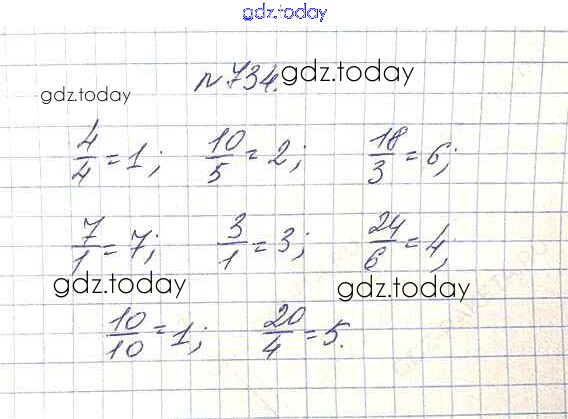 gdz.today
№734. gdz.today
gdz.today
4/4 = 1; 10/5 = 2; 18/3 = 6;
7/1 = 7; 3/1 = 3; 24/6 = 4;
gdz.today gdz.today
10/10 = 1; 20/4 = 5.